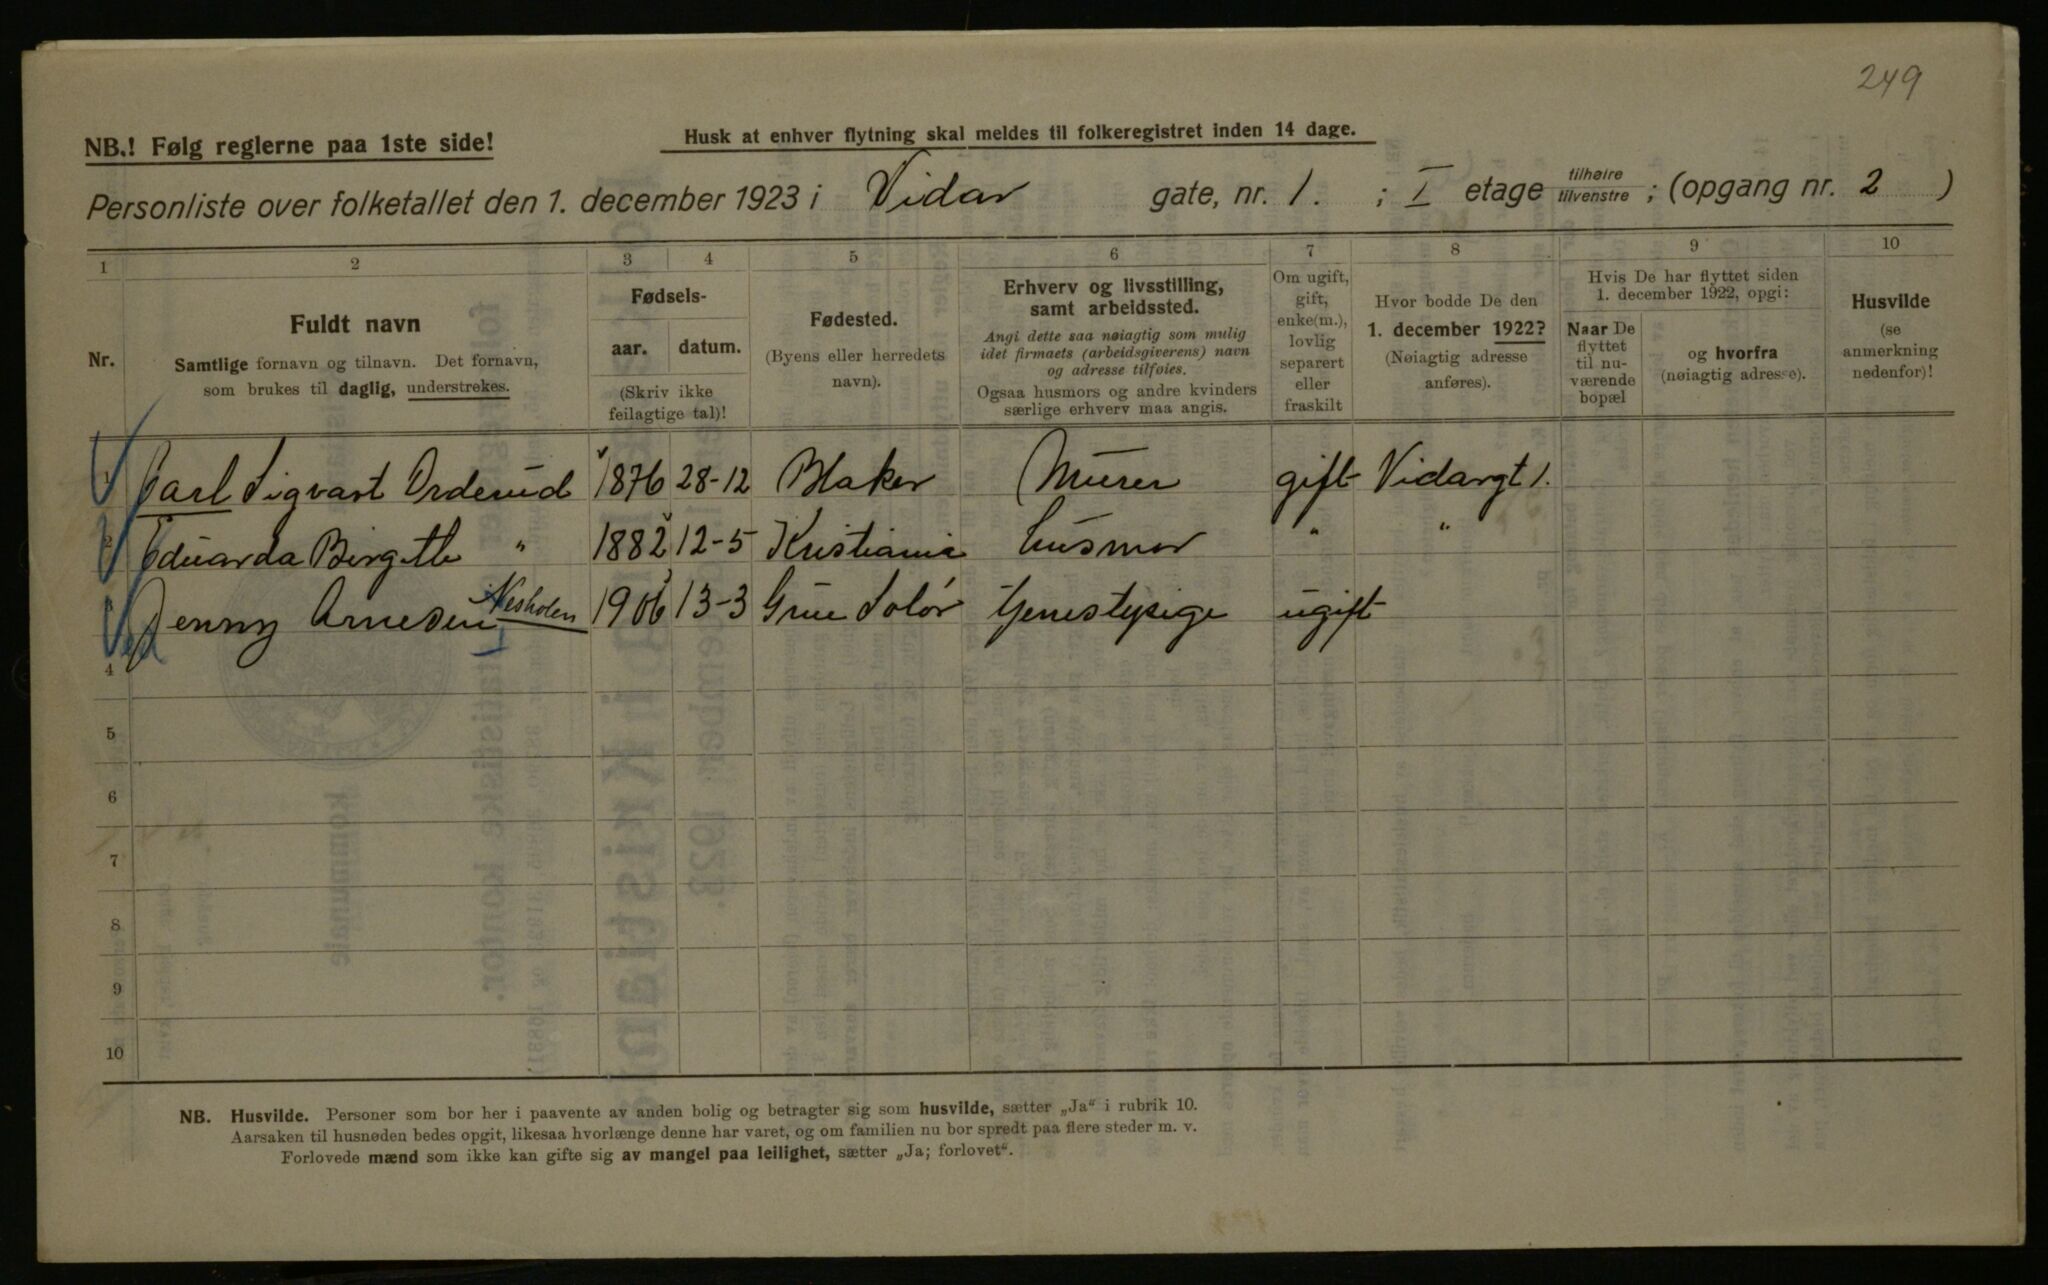 249
NB.! Følg reglerne paa 1ste side!
Husk at enhver flytning skal meldes til folkeregistret inden 14 dage.
Personliste over folketallet den 1. december 1923 i Vidar gate, nr. 1. ; I etage tilhøire/tilvenstre ; (opgang nr. 2 )
1 2 3 4 5 6 7 8 9 10
Nr.
Fuldt navn
Samtlige fornavn og tilnavn. Det fornavn,
som brukes til daglig, understrekes.
Fødsels-
aar. datum.
(Skriv ikke
feilagtige tal)!
Fødested.
(Byens eller herredets
navn).
Erhverv og livsstilling,
samt arbeidssted.
Angi dette saa nøiagtig som mulig
idet firmaets (arbeidsgiverens) navn
og adresse tilføies.
Ogsaa husmors og andre kvinders
særlige erhverv maa angis.
Om ugift,
gift,
enke(m.),
lovlig
separert
eller
fraskilt
Hvor bodde De den
1. december 1922?
(Nøiagtig adresse
anføres).
Hvis De har flyttet siden
1. december 1922, opgi:
Naar De
flyttet
til nu-
værende
bopæl
og hvorfra
(nøiagtig adresse).
Husvilde
(se
anmerkning
nedenfor)!
1 Carl Sigvart Orderud 1876 28-12 Blaker Murer gift Vidargt 1.
2 Eduarda Birgitte " 1882 12-5 Kristiania husmor " "
3 Jenny Arnesen Nesholen 1906 13-3 Grue Solør tjenestepige ugift
4
5
6
7
8
9
10
NB. Husvilde. Personer som bor her i paavente av anden bolig og betragter sig som husvilde, sætter „Ja" i rubrik 10.
Aarsaken til husnøden bedes opgit, likesaa hvorlænge denne har varet, og om familien nu bor spredt paa flere steder m. v.
Forlovede mænd som ikke kan gifte sig av mangel paa leilighet, sætter „Ja; forlovet".